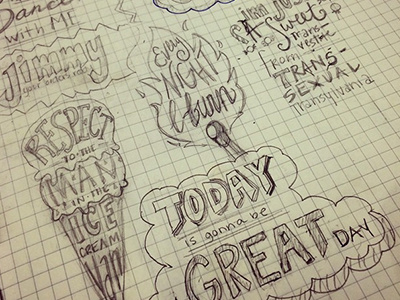 Dance
with ME
Jimmy
your
RESPECT
TO THE
MAN
IN THE
ICE
CREAM
Van
Every
NIGHT
I burn
I'm JUST
A Sweet
Trans-
vestite
from
TRANS-
SEXUAL
Transylvania
TODAY
is gonna be
GREAT DAY